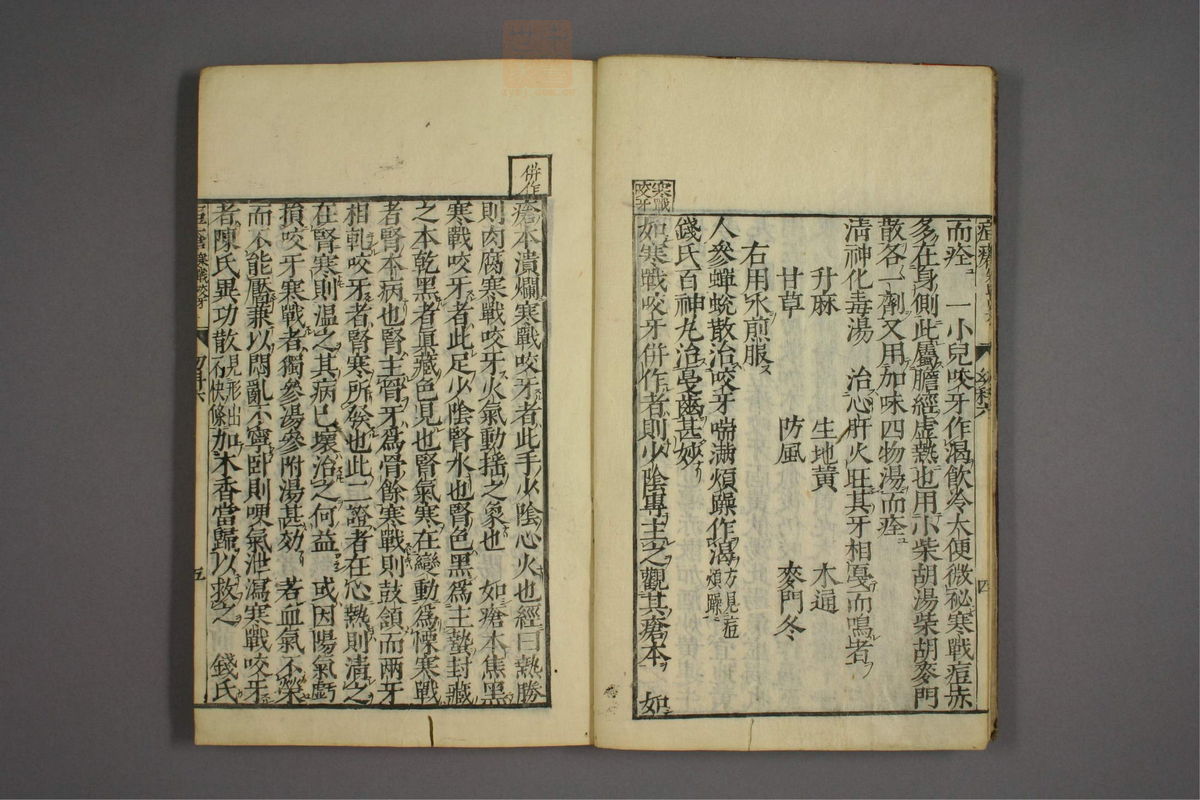 而痊 一小兒咬牙作渴飲冷大便微祕寒戰痘赤
多在身側此屬膽經虛熱也用小柴胡湯柴胡麥門
散各一劑又用加味四物湯而痊
清神化毒湯 治心肝火旺其牙相戛而鳴者
升麻 生地黃 木通
甘草 防風 麥門冬
右用水煎服
人參蟬蛻散治咬牙喘滿煩躁作渴方見痘煩躁
錢氏百神丸治戛齒甚妙
寒戰咬牙
如寒戰咬牙併作者則少陰專主之觀其瘡本 如
併作
瘡本潰爛寒戰咬牙者此手少陰心火也經曰熱勝
則肉腐寒戰咬牙火氣動搖之象也 如瘡本焦黑
寒戰咬牙者此足少陰腎水也腎色黑爲主蟄封藏
之本乾黑者眞藏色見也腎氣寒在變動爲慄寒戰
者腎本病也腎主骨牙爲骨餘寒戰則鼓頷而兩牙
相軋咬牙者腎寒所發也此二證者在心熱則清之
在腎寒則温之其病已壞治之何益 或因陽氣虧
損咬牙寒戰者獨參湯參附湯甚効 若血氣不榮
而不能壓兼以悶亂不寧卧則哽氣泄瀉寒戰咬牙
者陳氏異功散見形出不快條加木香當歸以救之 錢氏
寒戰咬牙
五
四